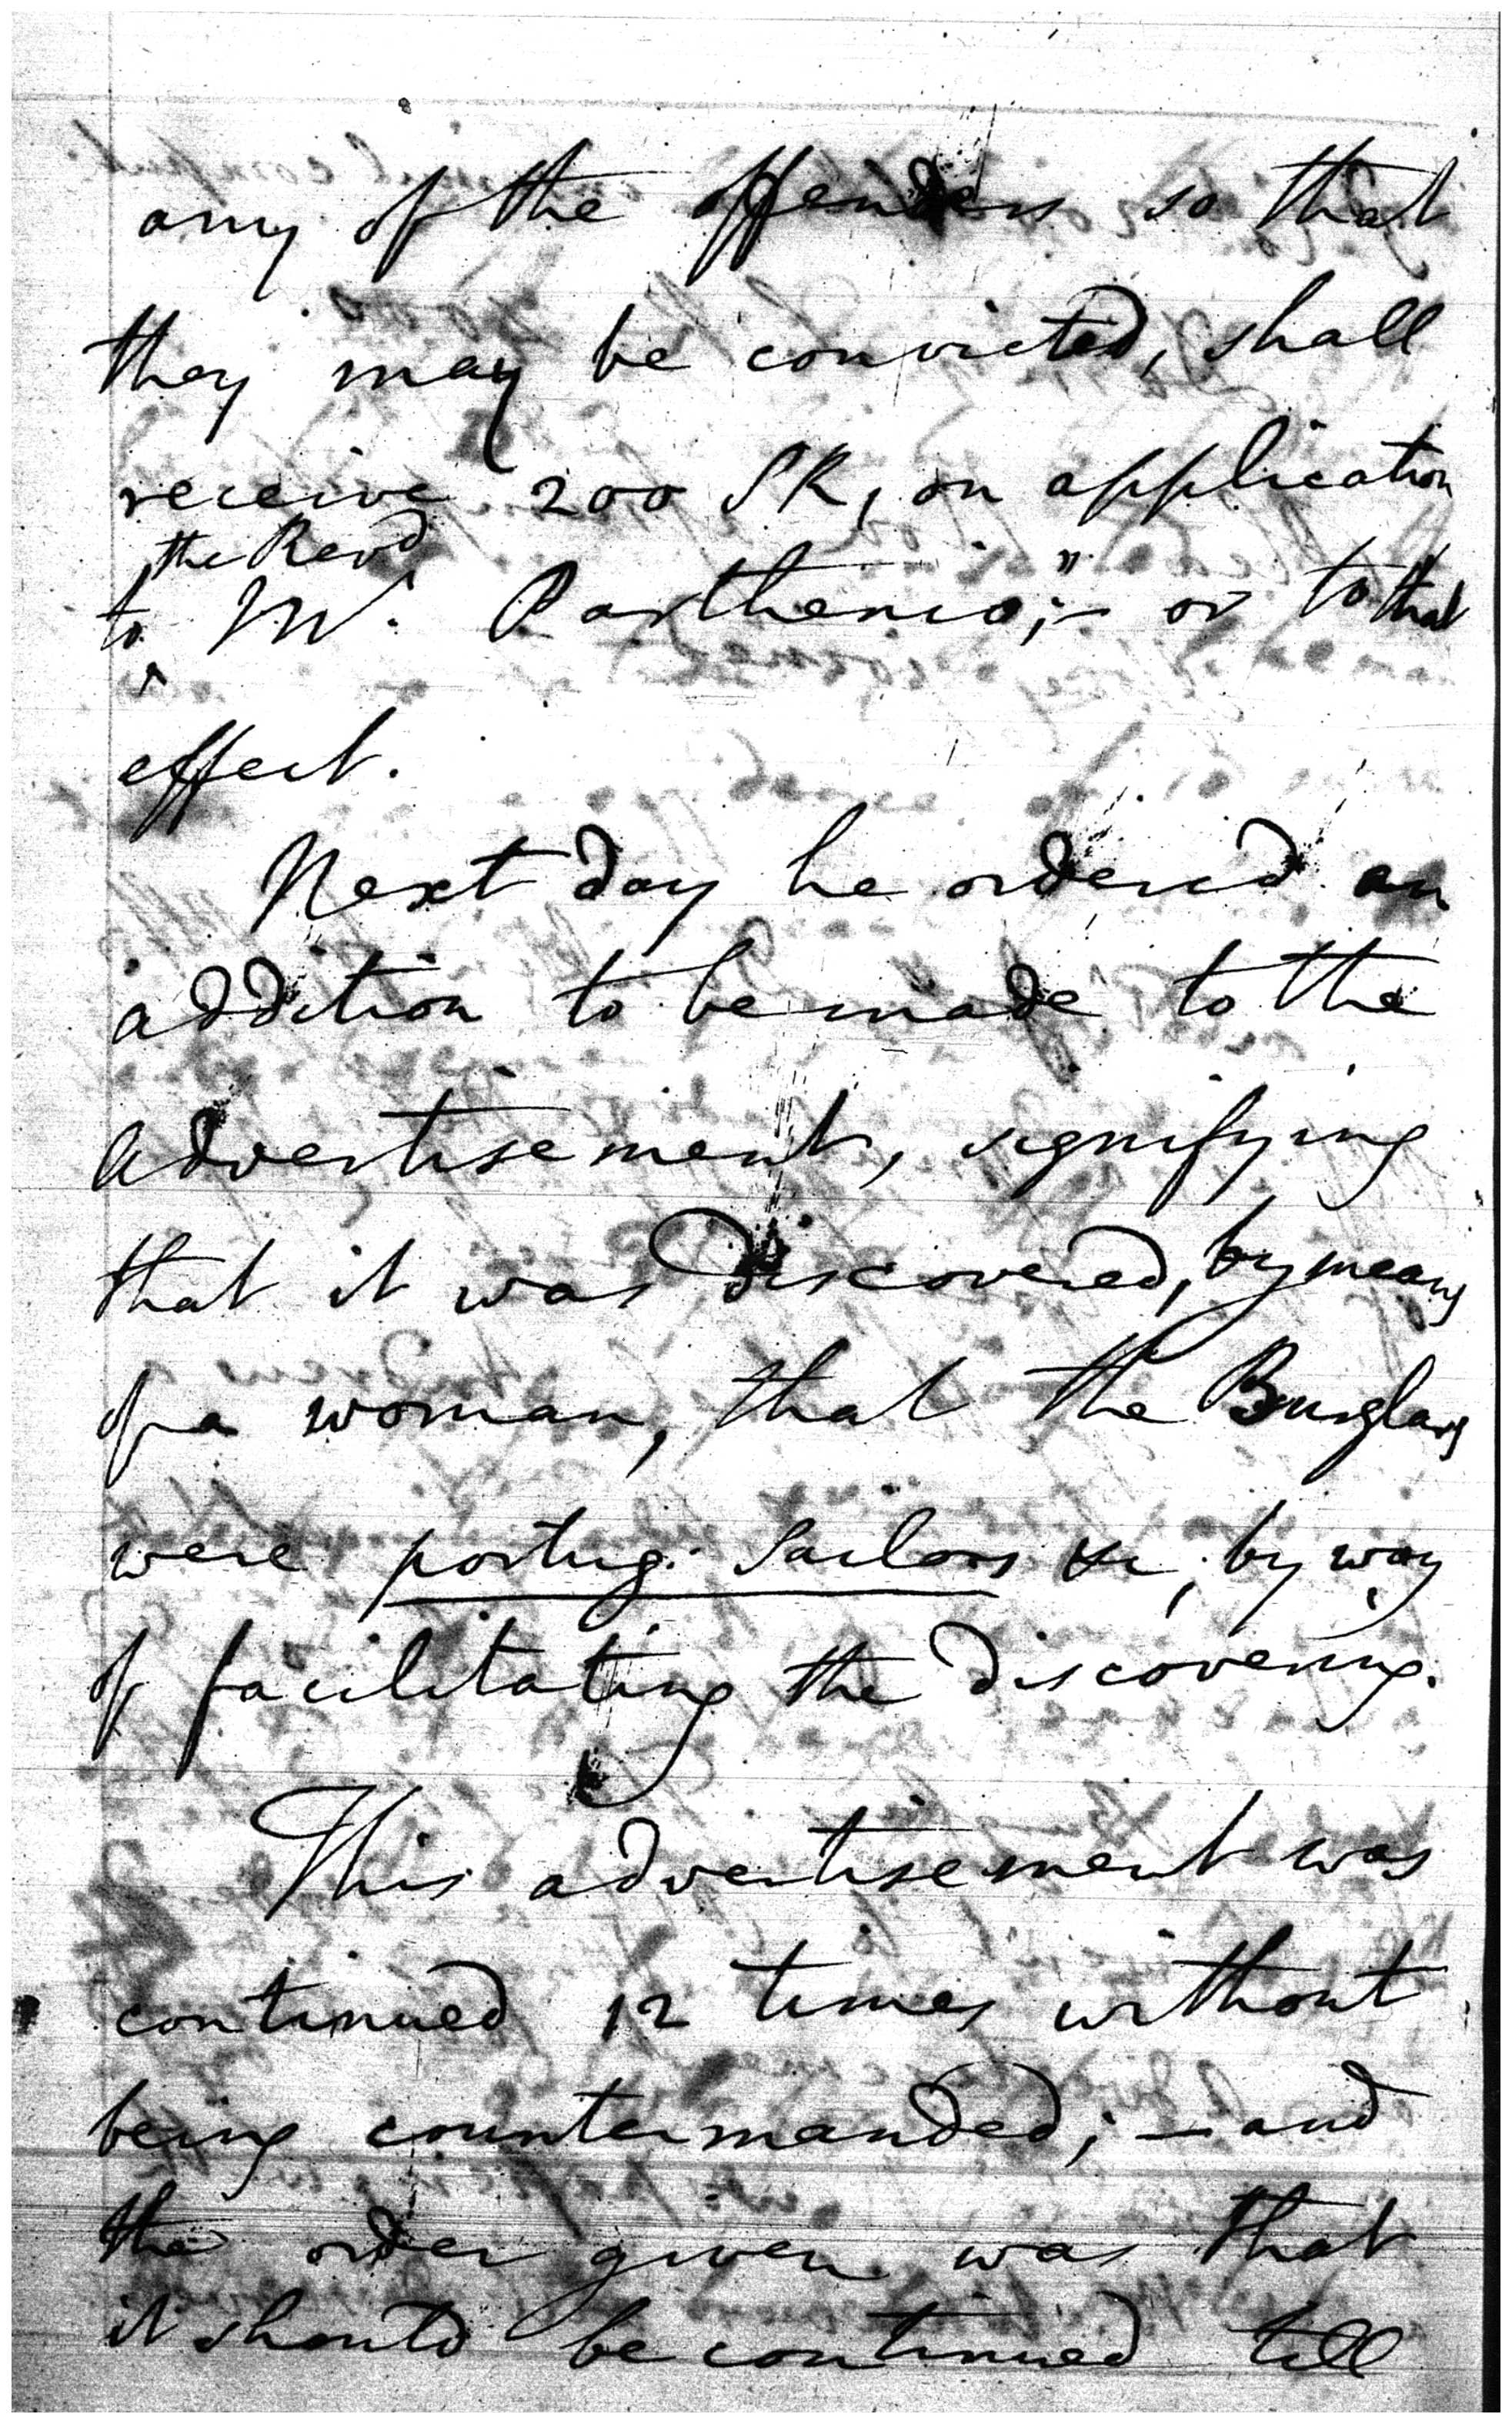 any of the offenders so that
they may be convicted, shall
receive 200 SR, on application
the Revd
to Mr. Parthenio;" – or to that
effect.
Next day he ordered an
addition to be made to the
advertisement, signifying
that it was discovered, by means
of a woman, that the Burglars
were portug. Sailors &c, by way
of facilitating the discovering.
This advertisement was
continued 12 times without
being countermanded; – and
the order given was that
it should be continued till